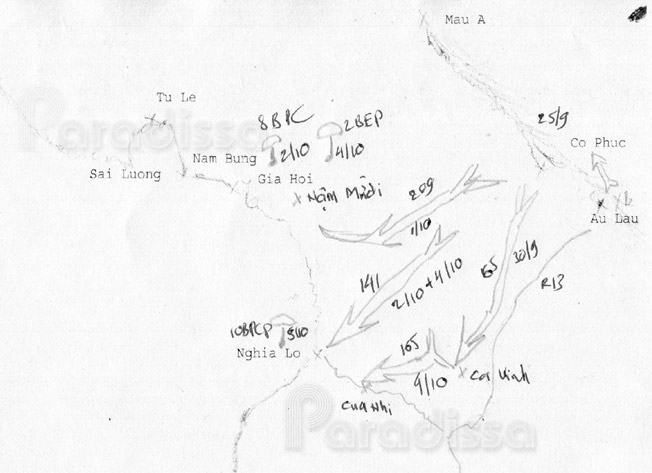 Mau A
Tu Le
8BPC
2BEP
25/9
2/10
4/10
Co Phuc
Nam Bung
Sai Luong
Gia Hoi
Nậm Mười
209
1/10
Au Lau
165
30/9
R13
141
2/10 + 4/10
10BPCP
5/10
Nghia Lo
165
9/10
Ca Vinh
Cua Nhi
Paradissa
Paradissa